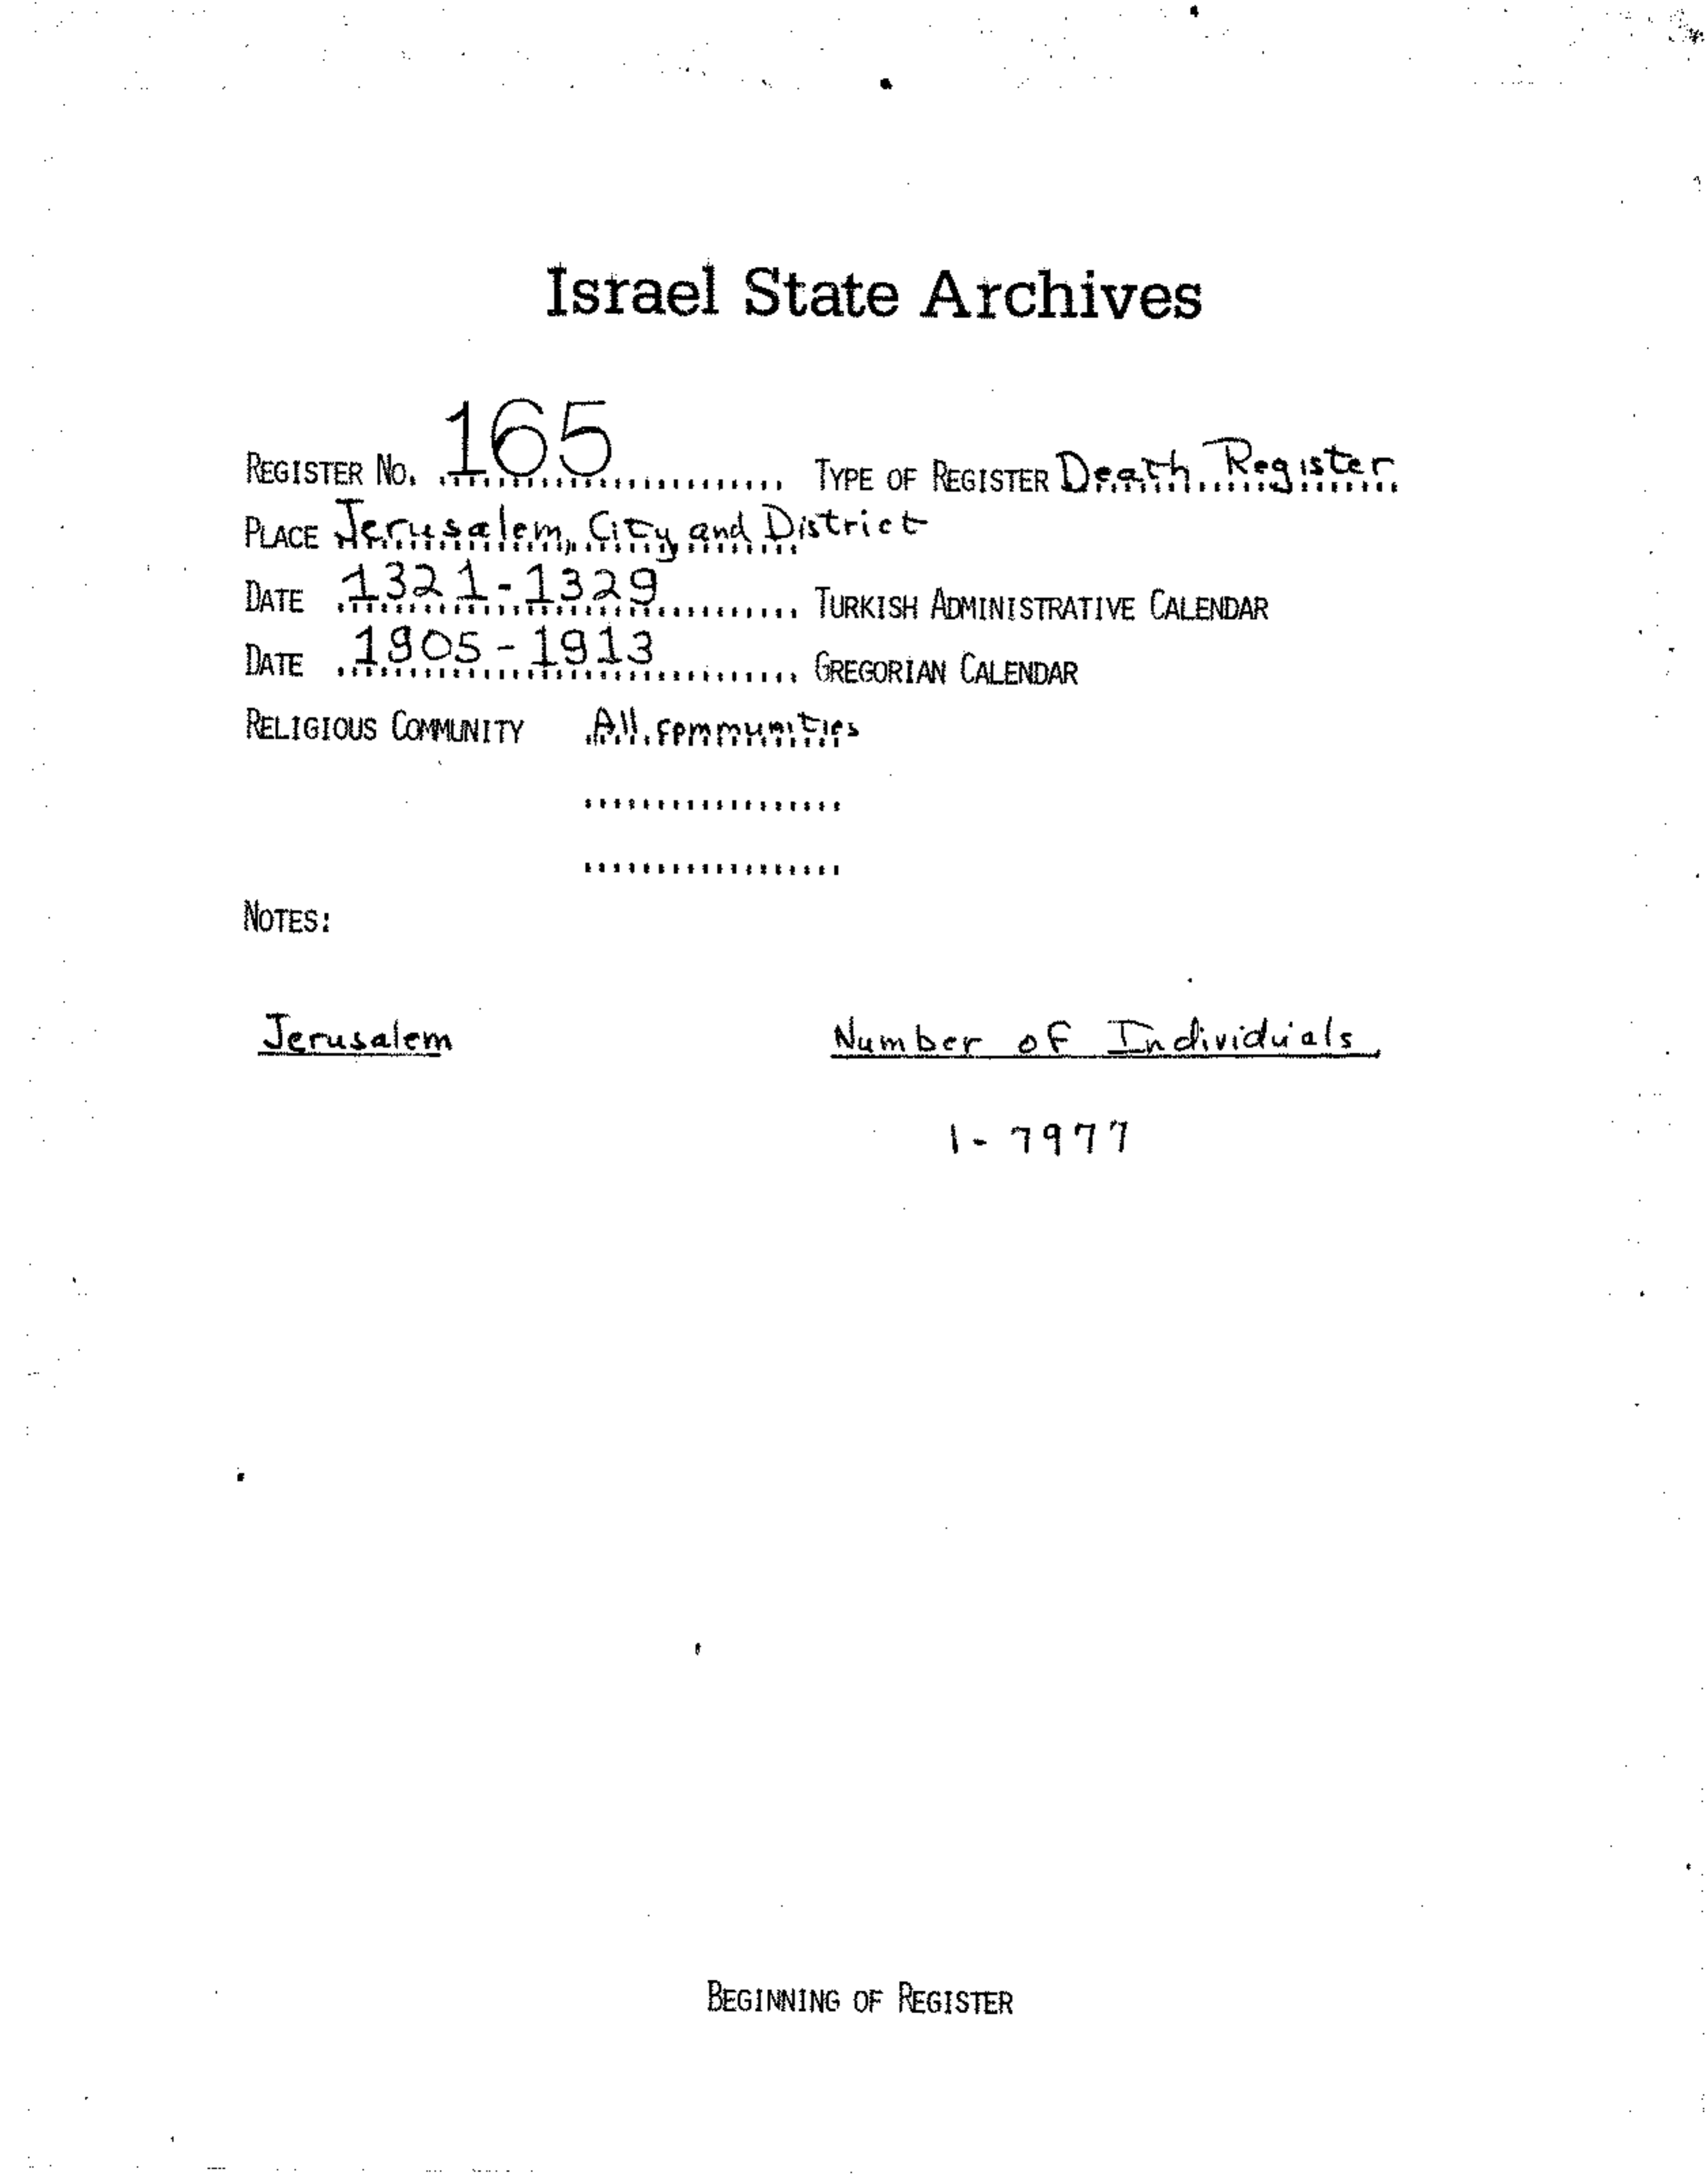 Israel State Archives
REGISTER NO. 165 TYPE OF REGISTER Death Register
PLACE Jerusalem, City and District
DATE 1321-1329 TURKISH ADMINISTRATIVE CALENDAR
DATE 1905-1913 GREGORIAN CALENDAR
RELIGIOUS COMMUNITY All communities
NOTES:
Jerusalem Number of Individuals
1-7977
BEGINNING OF REGISTER